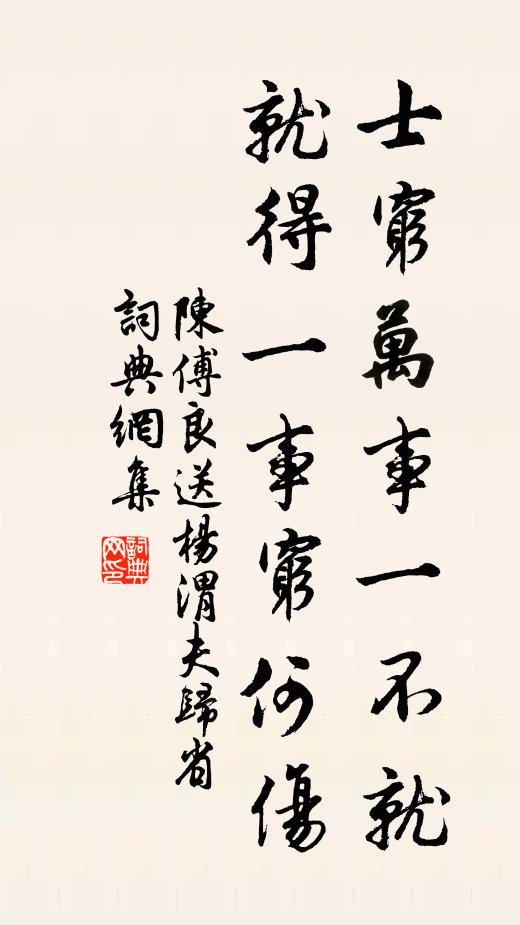 士窮萬事一不就
就得一事窮何傷
陳傅良送楊渭夫歸省
詞典網集
詞典網印